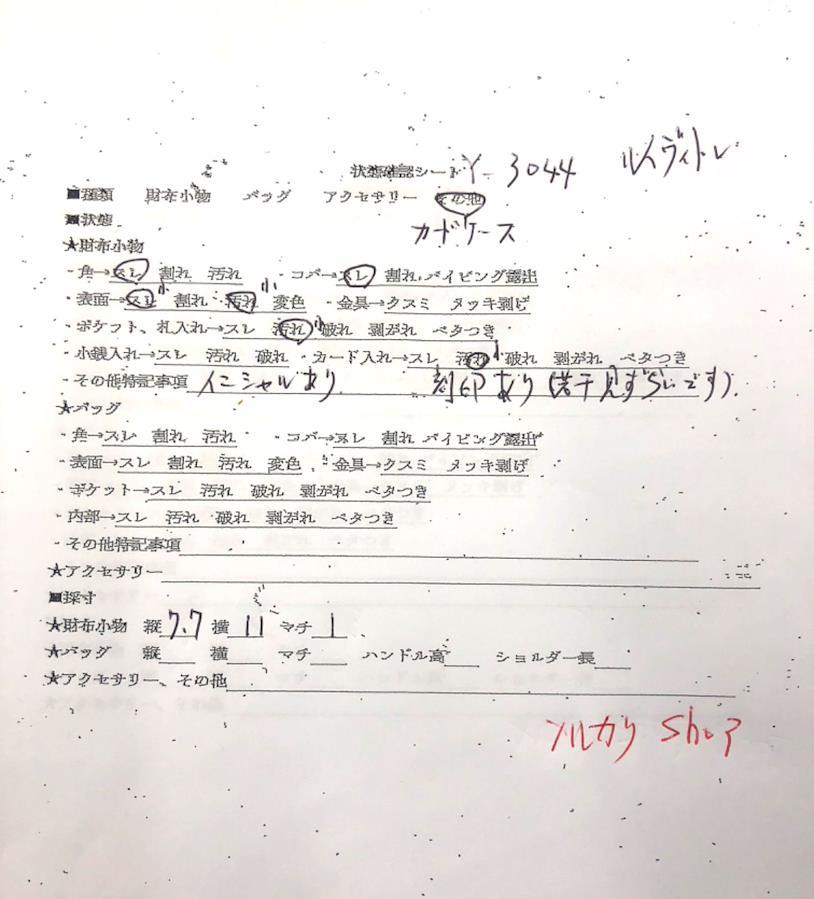 状態確認シート Y-3044 ルイヴィトン
■種類 財布小物 バッグ アクセサリー その他
■状態 カードケース
★財布小物
・角→スレ 割れ 汚れ ・コバ→スレ 割れ パイピング露出
・表面→スレ小 割れ 汚れ小 変色 ・金具→クスミ メッキ剥げ
・ポケット、札入れ→スレ 汚れ小 破れ 剥がれ ベタつき
・小銭入れ→スレ 汚れ 破れ ・カード入れ→スレ 汚れ小 破れ 剥がれ ベタつき
・その他特記事項 イニシャルあり 刻印あり(若干見ずらいです)
★バッグ
・角→スレ 割れ 汚れ ・コバ→スレ 割れ パイピング露出
・表面→スレ 割れ 汚れ 変色 ・金具→クスミ メッキ剥げ
・ポケット→スレ 汚れ 破れ 剥がれ ベタつき
・内部→スレ 汚れ 破れ 剥がれ ベタつき
・その他特記事項
★アクセサリー
■採寸
★財布小物 縦 7.7 横 11 マチ 1
★バッグ 縦 横 マチ ハンドル高 ショルダー長
★アクセサリー、その他
メルカリ Shop